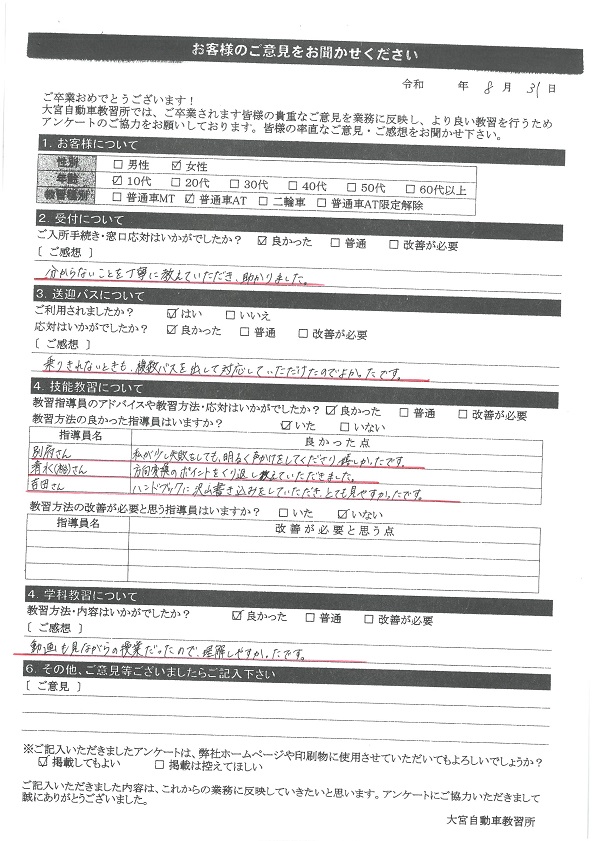 お客様のご意見をお聞かせください
令和 年 8 月 31 日
ご卒業おめでとうございます!
大宮自動車教習所では、ご卒業されます皆様の貴重なご意見を業務に反映し、より良い教習を行うため
アンケートのご協力をお願いしております。皆様の率直なご意見・ご感想をお聞かせ下さい。
1. お客様について
性別 □ 男性 ☑ 女性
年齢 ☑ 10代 □ 20代 □ 30代 □ 40代 □ 50代 □ 60代以上
教習種別 □ 普通車MT ☑ 普通車AT □ 二輪車 □ 普通車AT限定解除
2. 受付について
ご入所手続き・窓口応対はいかがでしたか? ☑ 良かった □ 普通 □ 改善が必要
[ ご感想 ]
分からないことを丁寧に教えていただき、助かりました。
3. 送迎バスについて
ご利用されましたか? ☑ はい □ いいえ
応対はいかがでしたか? ☑ 良かった □ 普通 □ 改善が必要
[ ご感想 ]
乗りきれないときも、複数バスを出して対応していただけたのでよかったです。
4. 技能教習について
教習指導員のアドバイスや教習方法・応対はいかがでしたか? ☑ 良かった □ 普通 □ 改善が必要
教習方法の良かった指導員はいますか? ☑ いた □ いない
指導員名 良かった点
別府さん 私が少し失敗をしても、明るく声かけをしてくださり嬉しかったです。
清水(裕)さん 方向変換のポイントをくり返し教えていただきました。
吉田さん ハンドブックに沢山書き込みをしていただき、とても見やすかったです。
教習方法の改善が必要と思う指導員はいますか? □ いた ☑ いない
指導員名 改善が必要と思う点
4. 学科教習について
教習方法・内容はいかがでしたか? ☑ 良かった □ 普通 □ 改善が必要
[ ご感想 ]
動画も見ながらの授業だったので、理解しやすかったです。
6. その他、ご意見等ございましたらご記入下さい
[ ご意見 ]
※ご記入いただきましたアンケートは、弊社ホームページや印刷物に使用させていただいてもよろしいでしょうか?
☑ 掲載してもよい □ 掲載は控えてほしい
ご記入いただきました内容は、これからの業務に反映していきたいと思います。アンケートにご協力いただきまして
誠にありがとうございました。
大宮自動車教習所